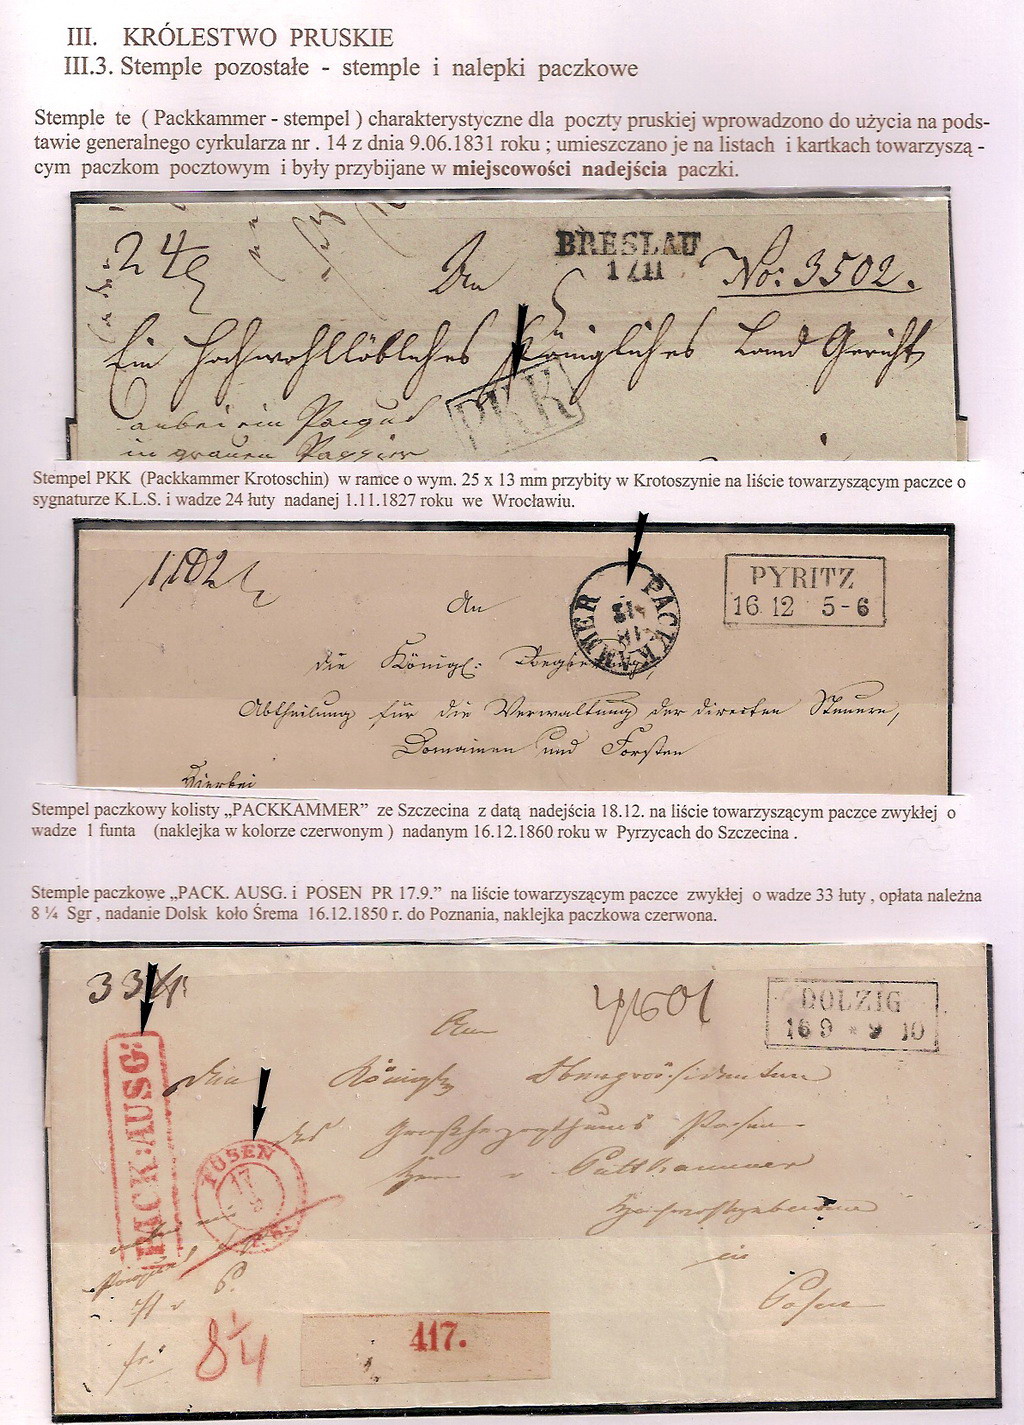 III. KRÓLESTWO PRUSKIE
III.3. Stemple pozostałe - stemple i nalepki paczkowe
Stemple te ( Packkammer - stempel ) charakterystyczne dla poczty pruskiej wprowadzono do użycia na pods-
tawie generalnego cyrkularza nr . 14 z dnia 9.06.1831 roku ; umieszczano je na listach i kartkach towarzyszą -
cym paczkom pocztowym i były przybijane w miejscowości nadejścia paczki.
BRESLAU
1/11
An
No: 3502.
Ein Hochwohllöbliches Königliches Land Gericht
PKK
anbei ein
in grauen
Stempel PKK (Packkammer Krotoschin) w ramce o wym. 25 x 13 mm przybity w Krotoszynie na liście towarzyszącym paczce o
sygnaturze K.L.S. i wadze 24 łuty nadanej 1.11.1827 roku we Wrocławiu.
PACKKAMMER
PYRITZ
16 12 5-6
An
die Königl:
Abtheilung für die Verwaltung der directen Steuern,
Domainen und Forsten
Hierbei
Stempel paczkowy kolisty „PACKKAMMER” ze Szczecina z datą nadejścia 18.12. na liście towarzyszącym paczce zwykłej o
wadze 1 funta (naklejka w kolorze czerwonym ) nadanym 16.12.1860 roku w Pyrzycach do Szczecina .
Stemple paczkowe „PACK. AUSG. i POSEN PR 17.9.” na liście towarzyszącym paczce zwykłej o wadze 33 łuty , opłata należna
8 ¼ Sgr , nadanie Dolsk koło Śrema 16.12.1850 r. do Poznania, naklejka paczkowa czerwona.
DOLZIG
16 9 * 9 10
PACK:AUSG:
An
den Königl Oberpräsidenten
des Großherzogthums Posen
Herrn v Puttkammer
in
Posen
POSEN
17
9
8 1/4
417.